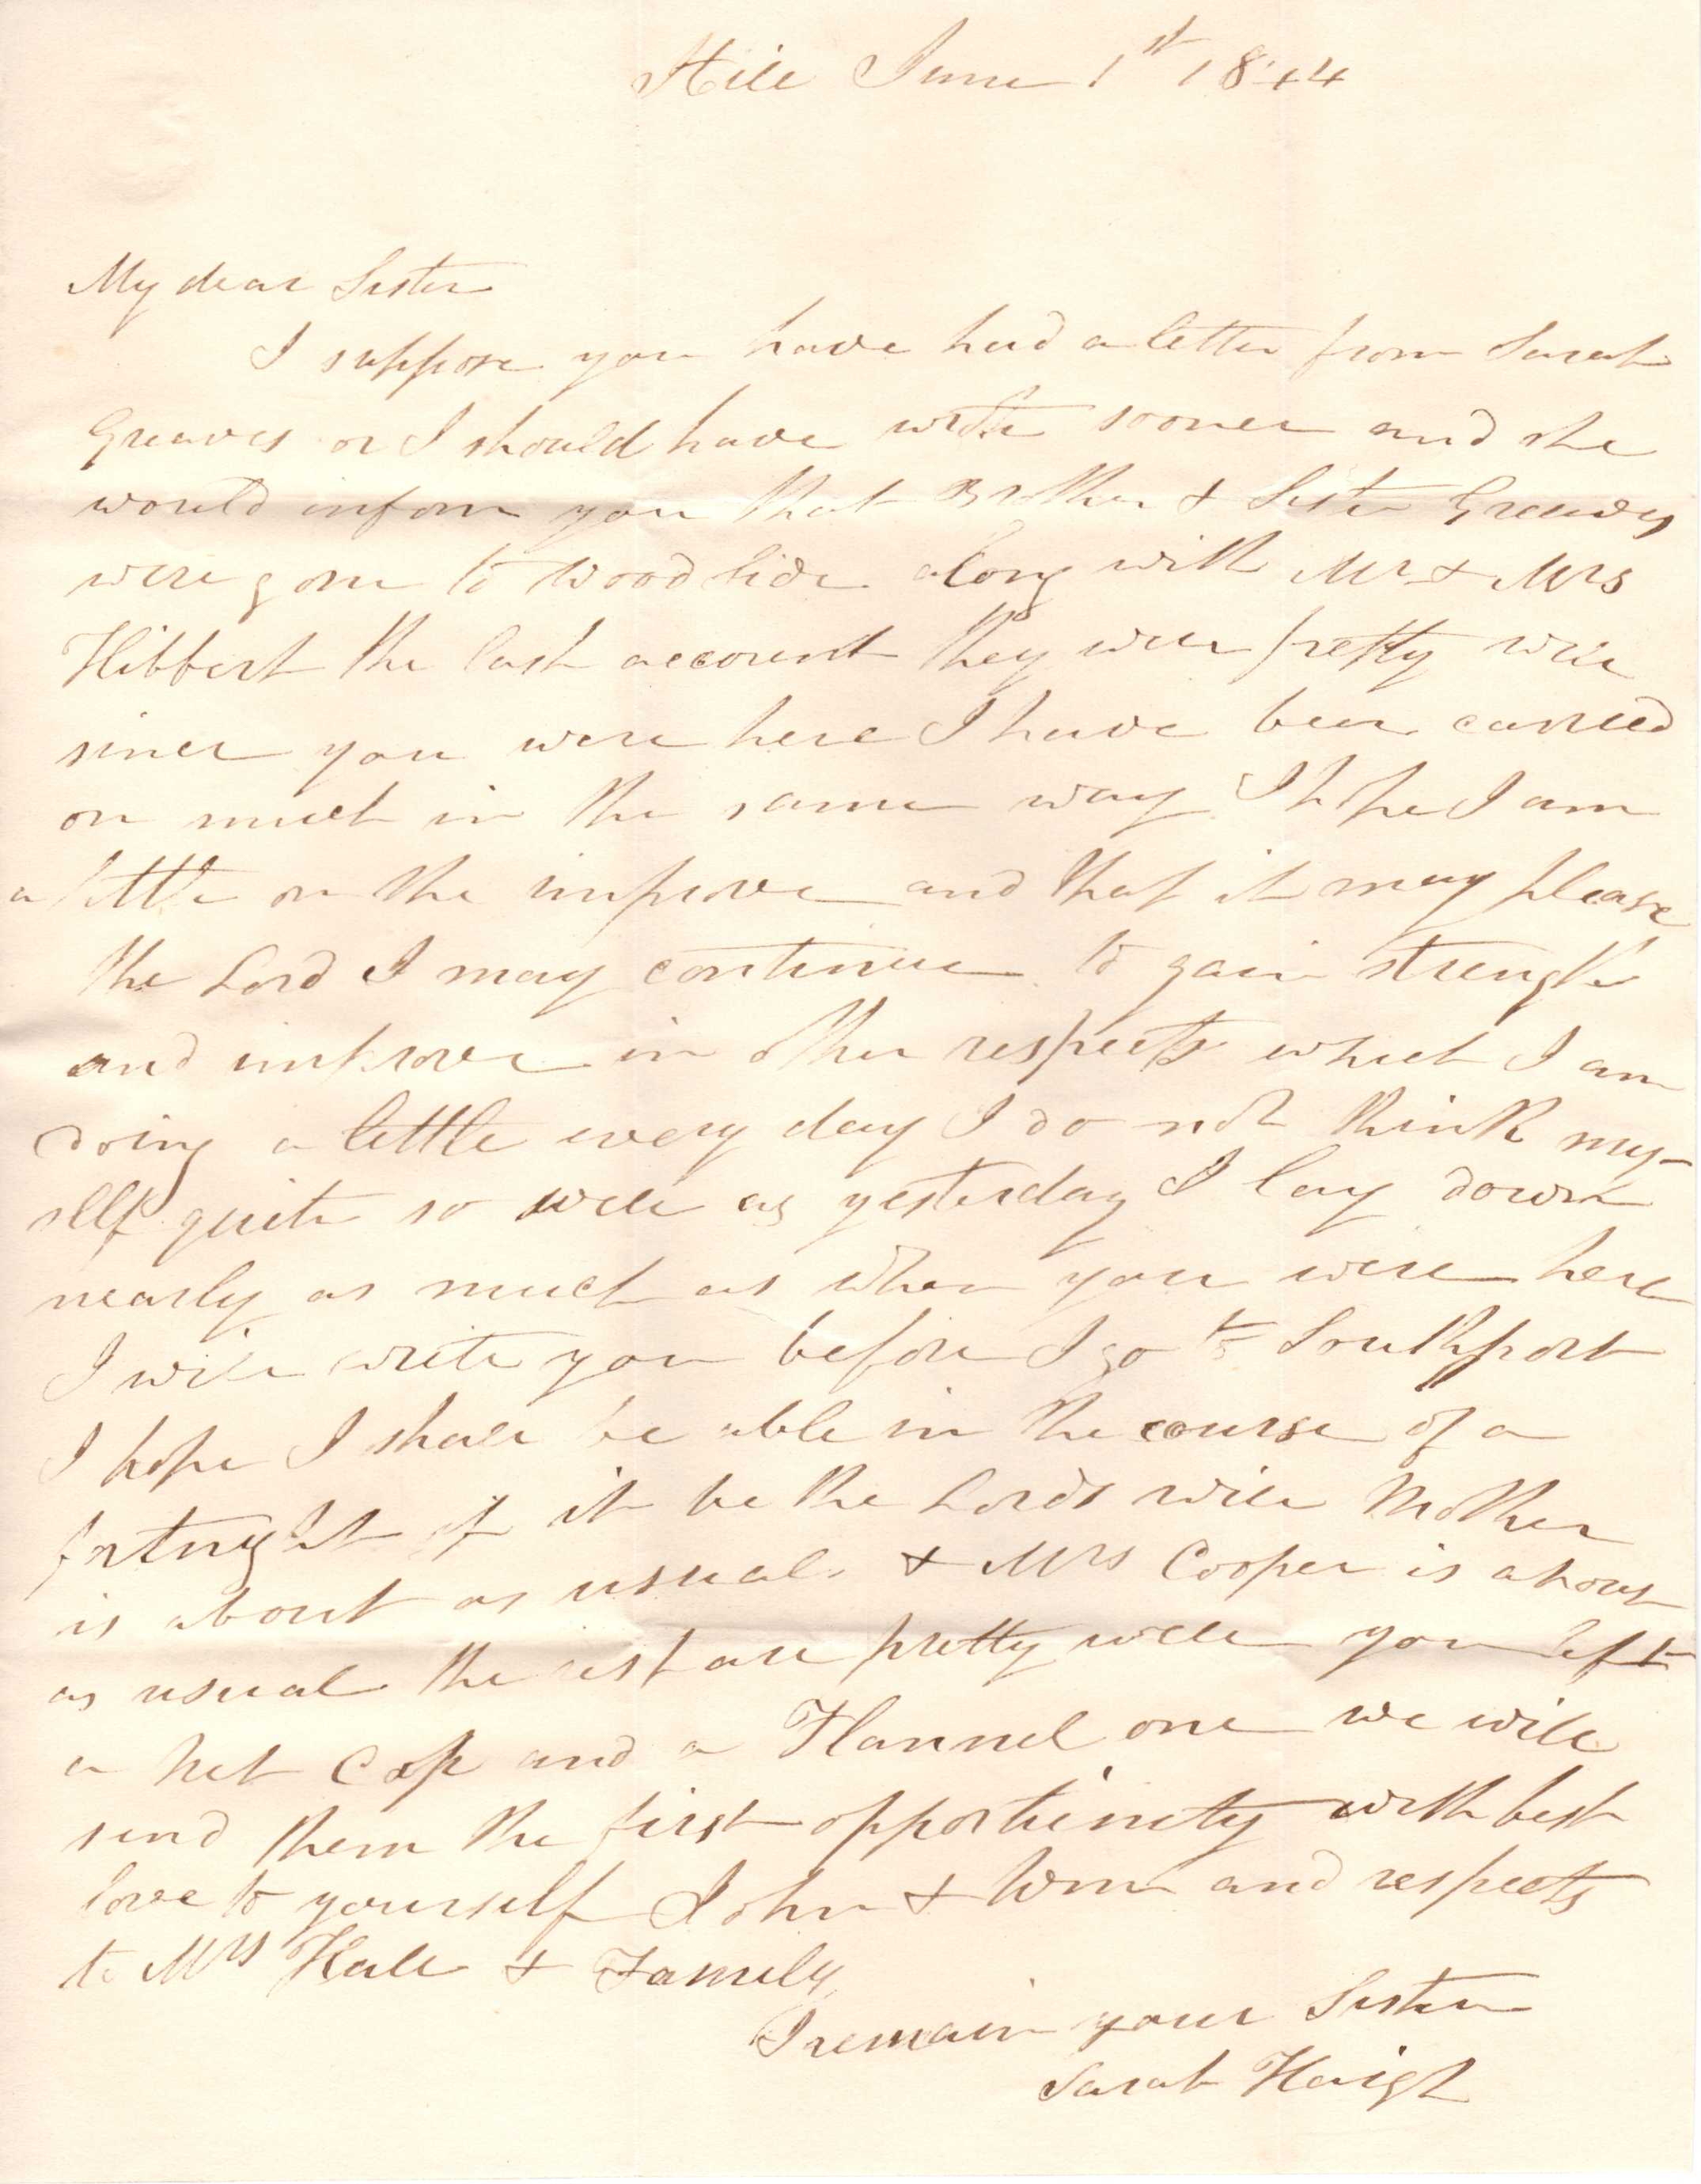 Hill June 1st 1844
My dear Sister
I suppose you have had a letter from Sarah
Greaves or I should have wrote sooner and she
would inform you that Brother & Sister Greaves
were gone to Woodside along with Mr & Mrs
Hibbert the last account they were pretty well
since you were here I have been carried
on much in the same way I hope I am
a little on the improve and that it may please
the Lord I may continue to gain strength
and improve in other respects which I am
doing a little every day I do not think my-
self quite so well as yesterday I lay down
nearly as much as when you were here
I will write you before I go to Southport
I hope I shall be able in the course of a
fortnight if it be the Lords will Mother
is about as usual & Mrs Cooper is about
as usual the rest are pretty well you left
a Net Cap and a Flannel one we will
send them the first opportunity with best
love to yourself John & Wm and respects
to Mrs Hall & Family
I remain your Sister
Sarah Haigh